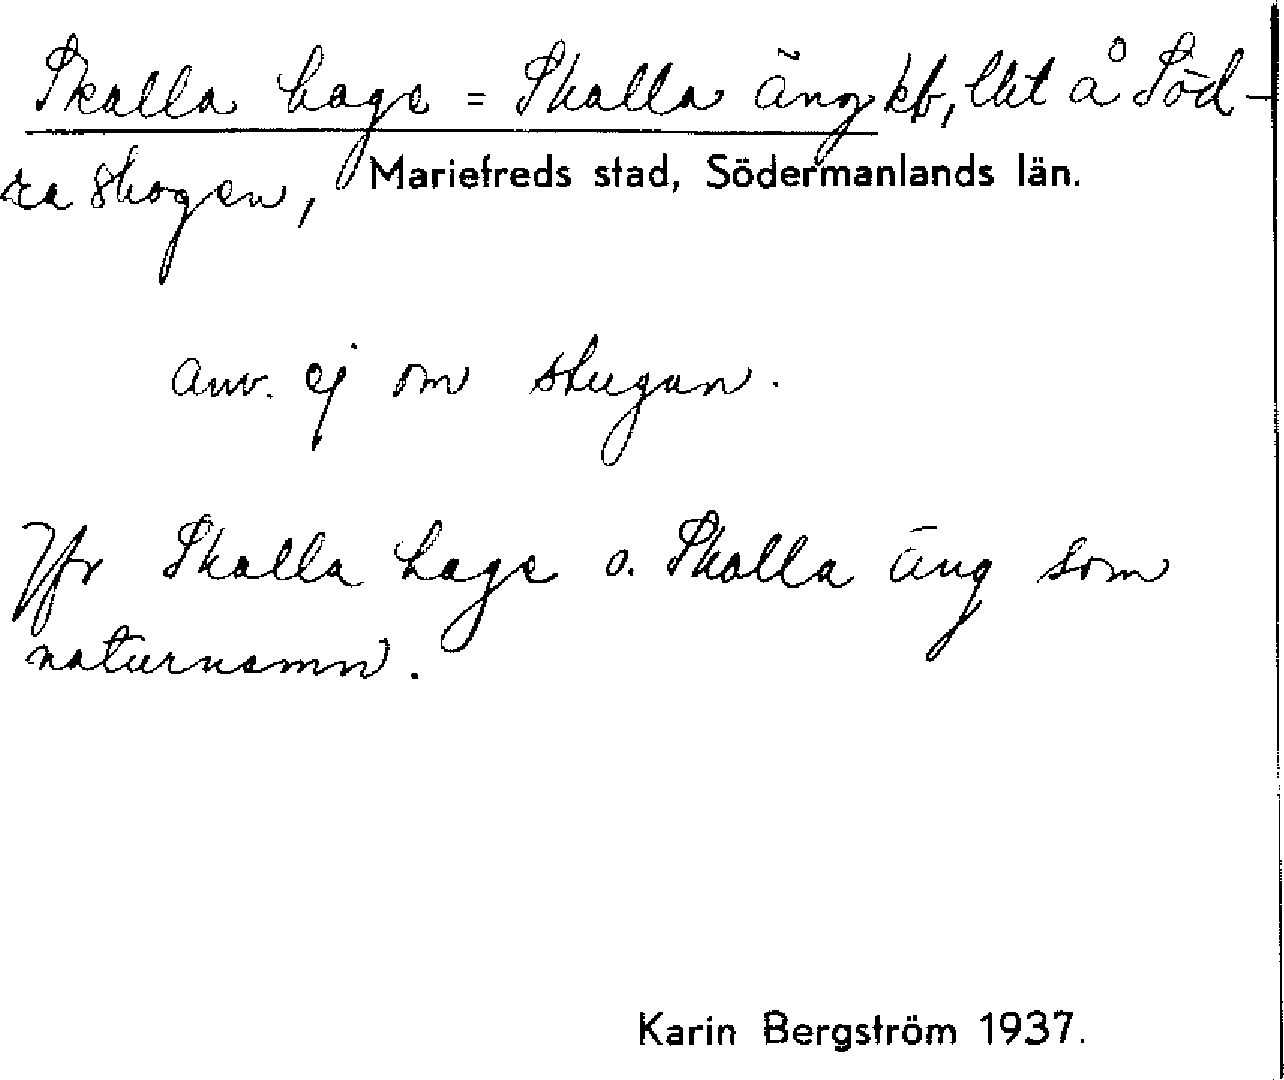 Skalla hage = Skalla äng kf, lht å Söd-
ra skogen, Mariefreds stad, Södermanlands län.
anv. ej om stugan.
Jfr Skalla hage o. Skalla äng som
naturnamn.
Karin Bergström 1937.